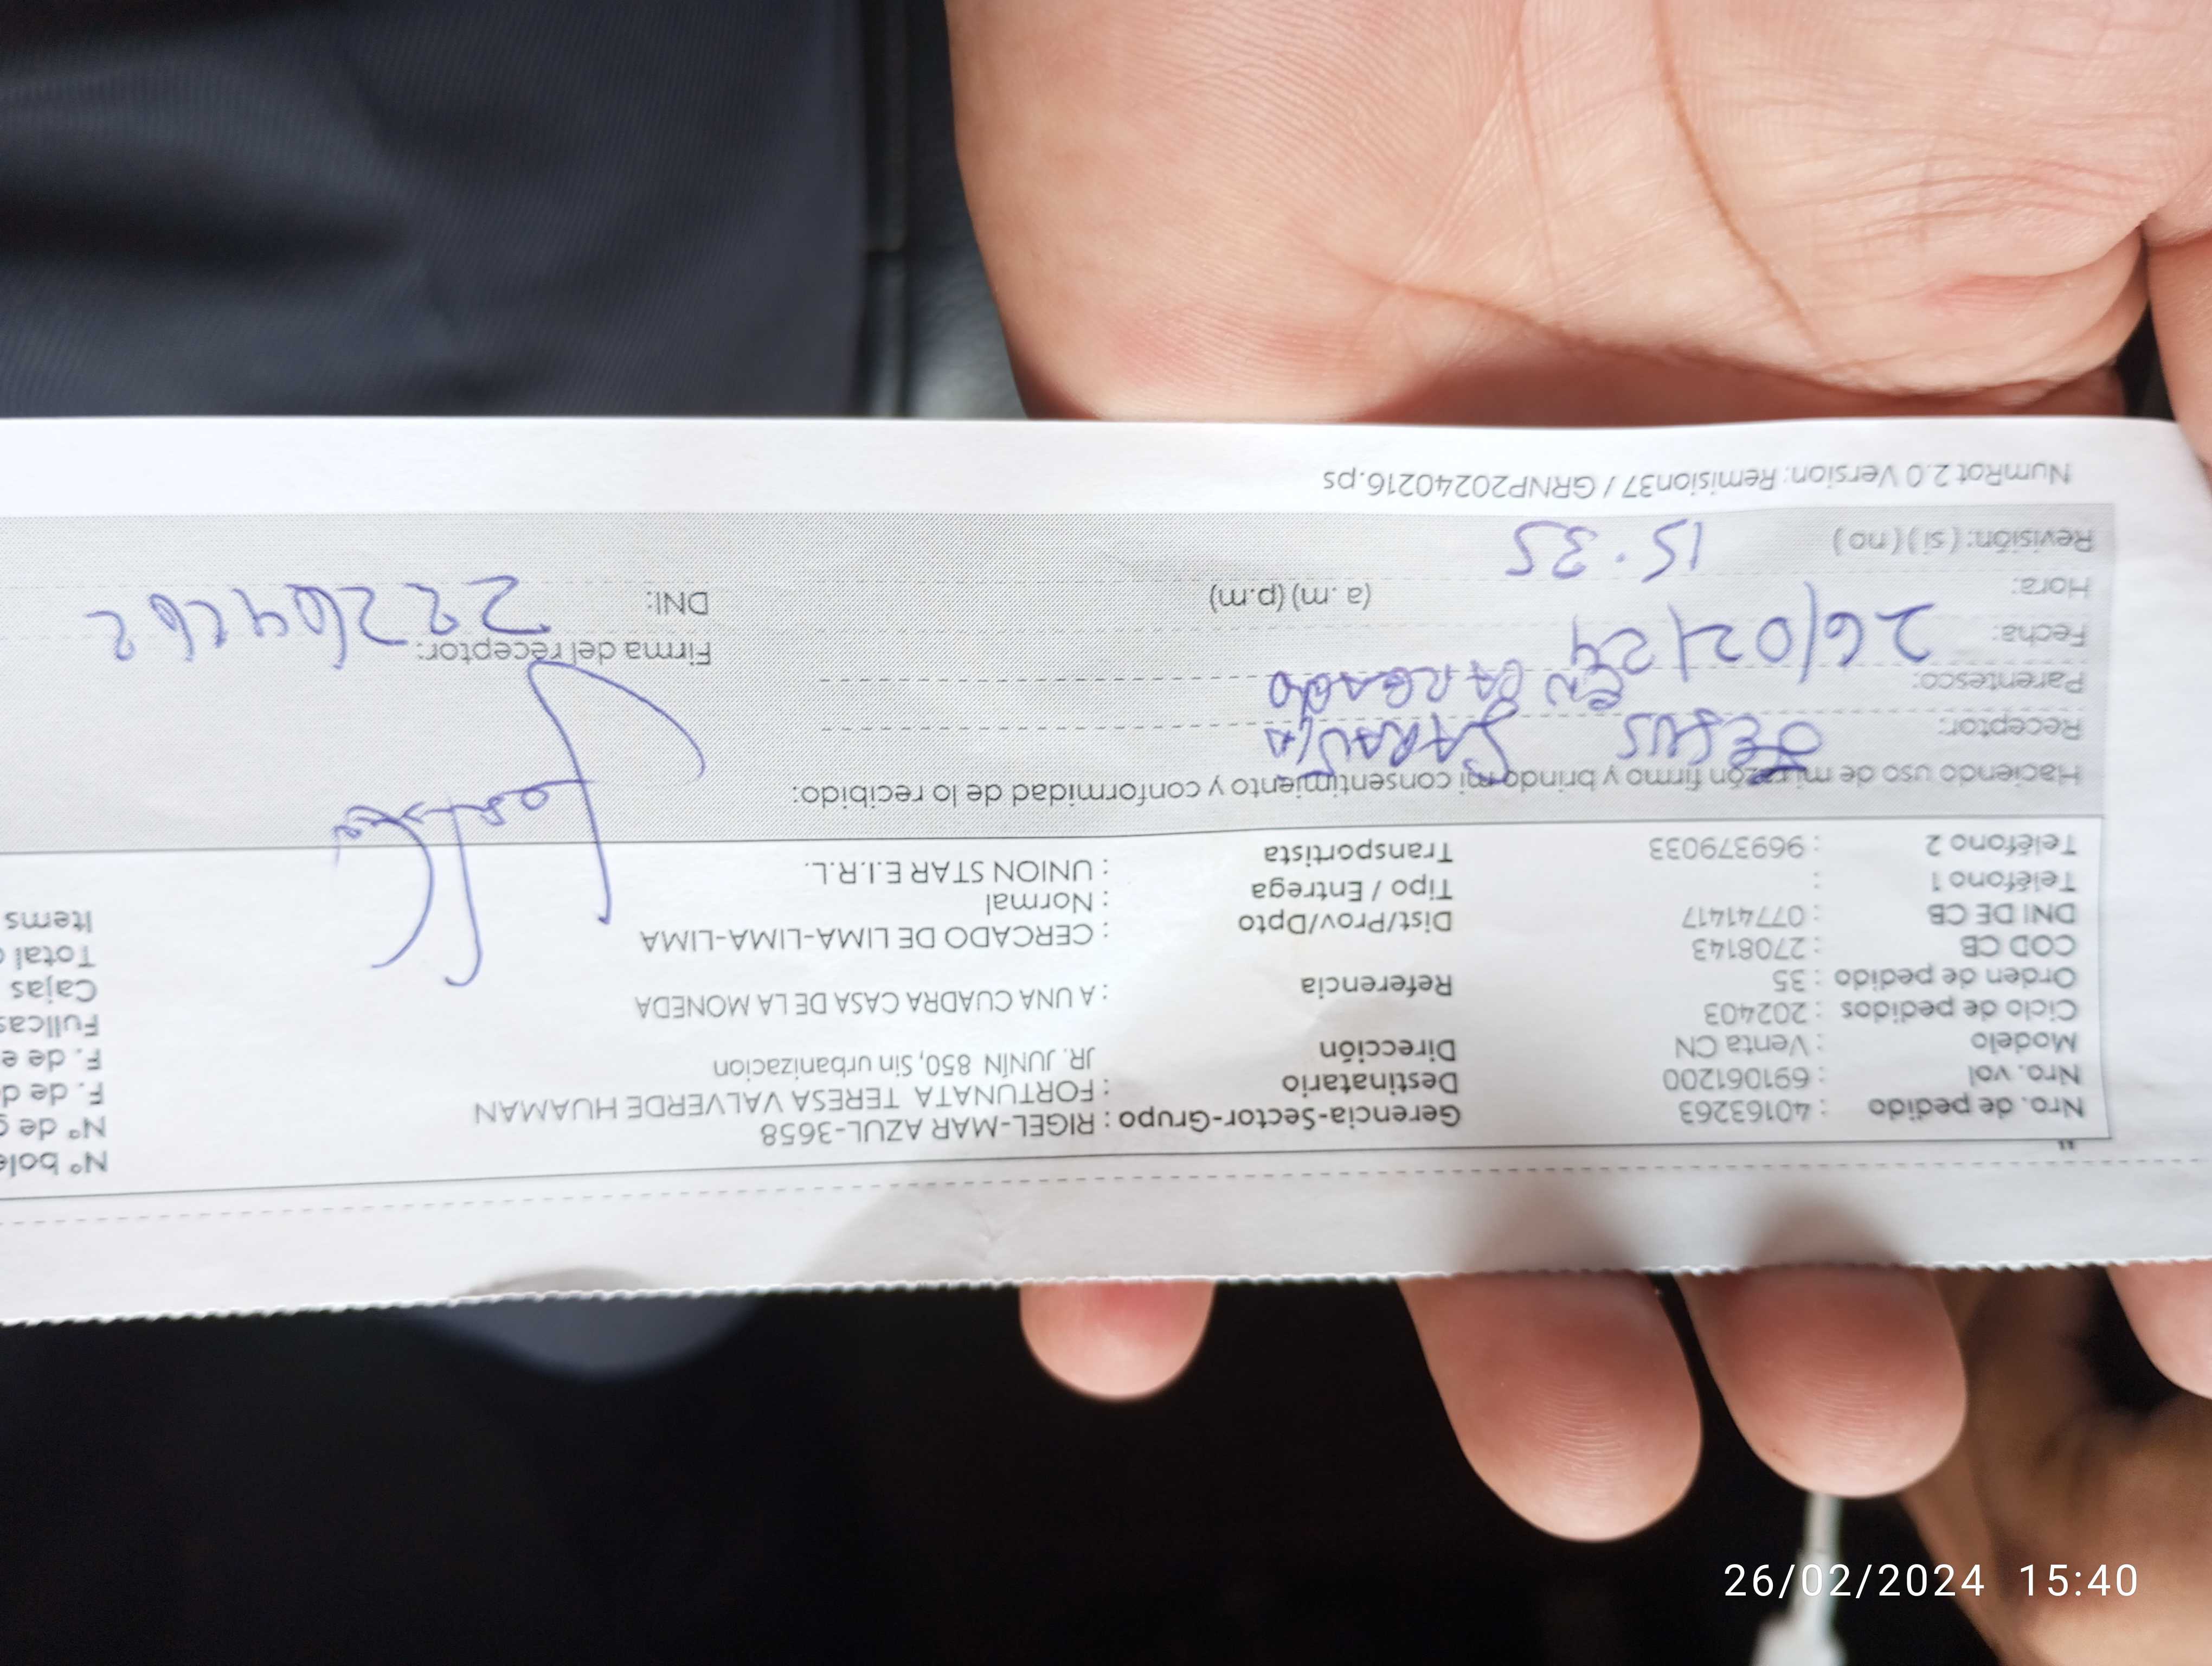 Nro. de pedido : 40163263 Gerencia-Sector-Grupo : RIGEL-MAR AZUL-3658 Nº bole
Nro. vol : 691061200 Destinatario : FORTUNATA TERESA VALVERDE HUAMAN Nº de g
Modelo : Venta CN Dirección JR. JUNÍN 850, Sin urbanizacion F. de d
Ciclo de pedidos : 202403 F. de e
Orden de pedido : 35 Referencia : A UNA CUADRA CASA DE LA MONEDA Fullcas
COD CB : 2708143 Cajas
DNI DE CB : 07741417 Dist/Prov/Dpto : CERCADO DE LIMA-LIMA-LIMA Total
Teléfono 1 : Tipo / Entrega : Normal Items
Teléfono 2 : 969379033 Transportista : UNION STAR E.I.R.L.
Haciendo uso de mi razón firmo y brindo mi consentimiento y conformidad de lo recibido:
Receptor: JESUS
Parentesco: EN CARGADO
Fecha: 26/02/24 Firma del receptor:
Hora: 15.35 (a .m) (p.m) DNI:
Revisión: ( si ) ( no )
NumRot 2.0 Version: Remision37 / GRNP20240216.ps
26/02/2024 15:40